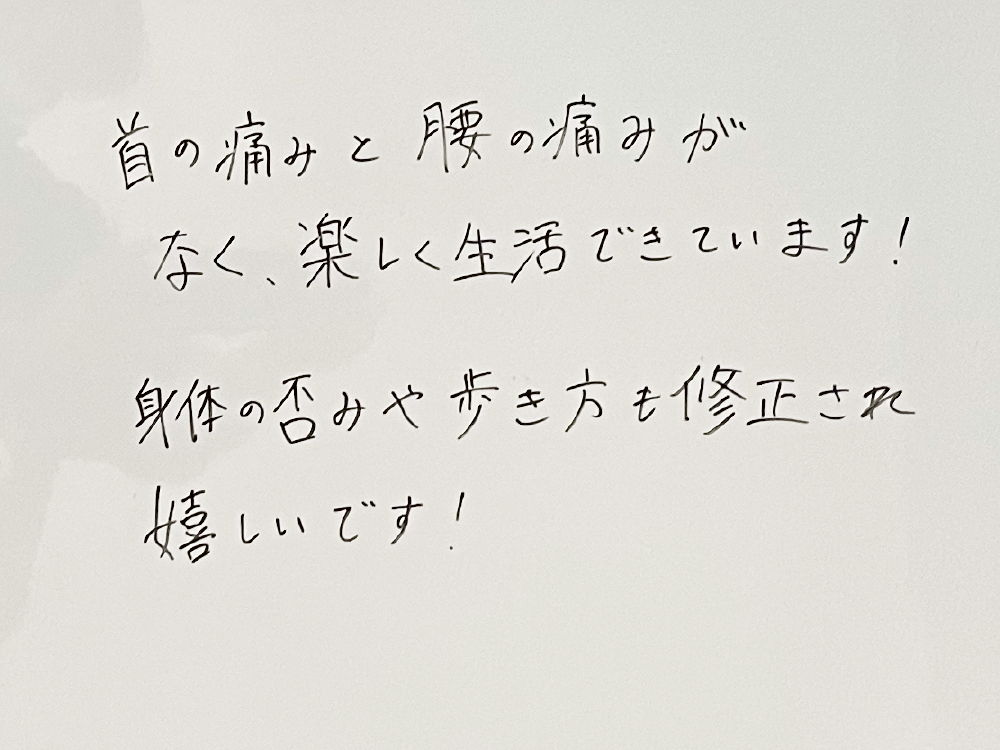 首の痛みと腰の痛みが
なく、楽しく生活できています!
身体の否みや歩き方も修正され
嬉しいです!